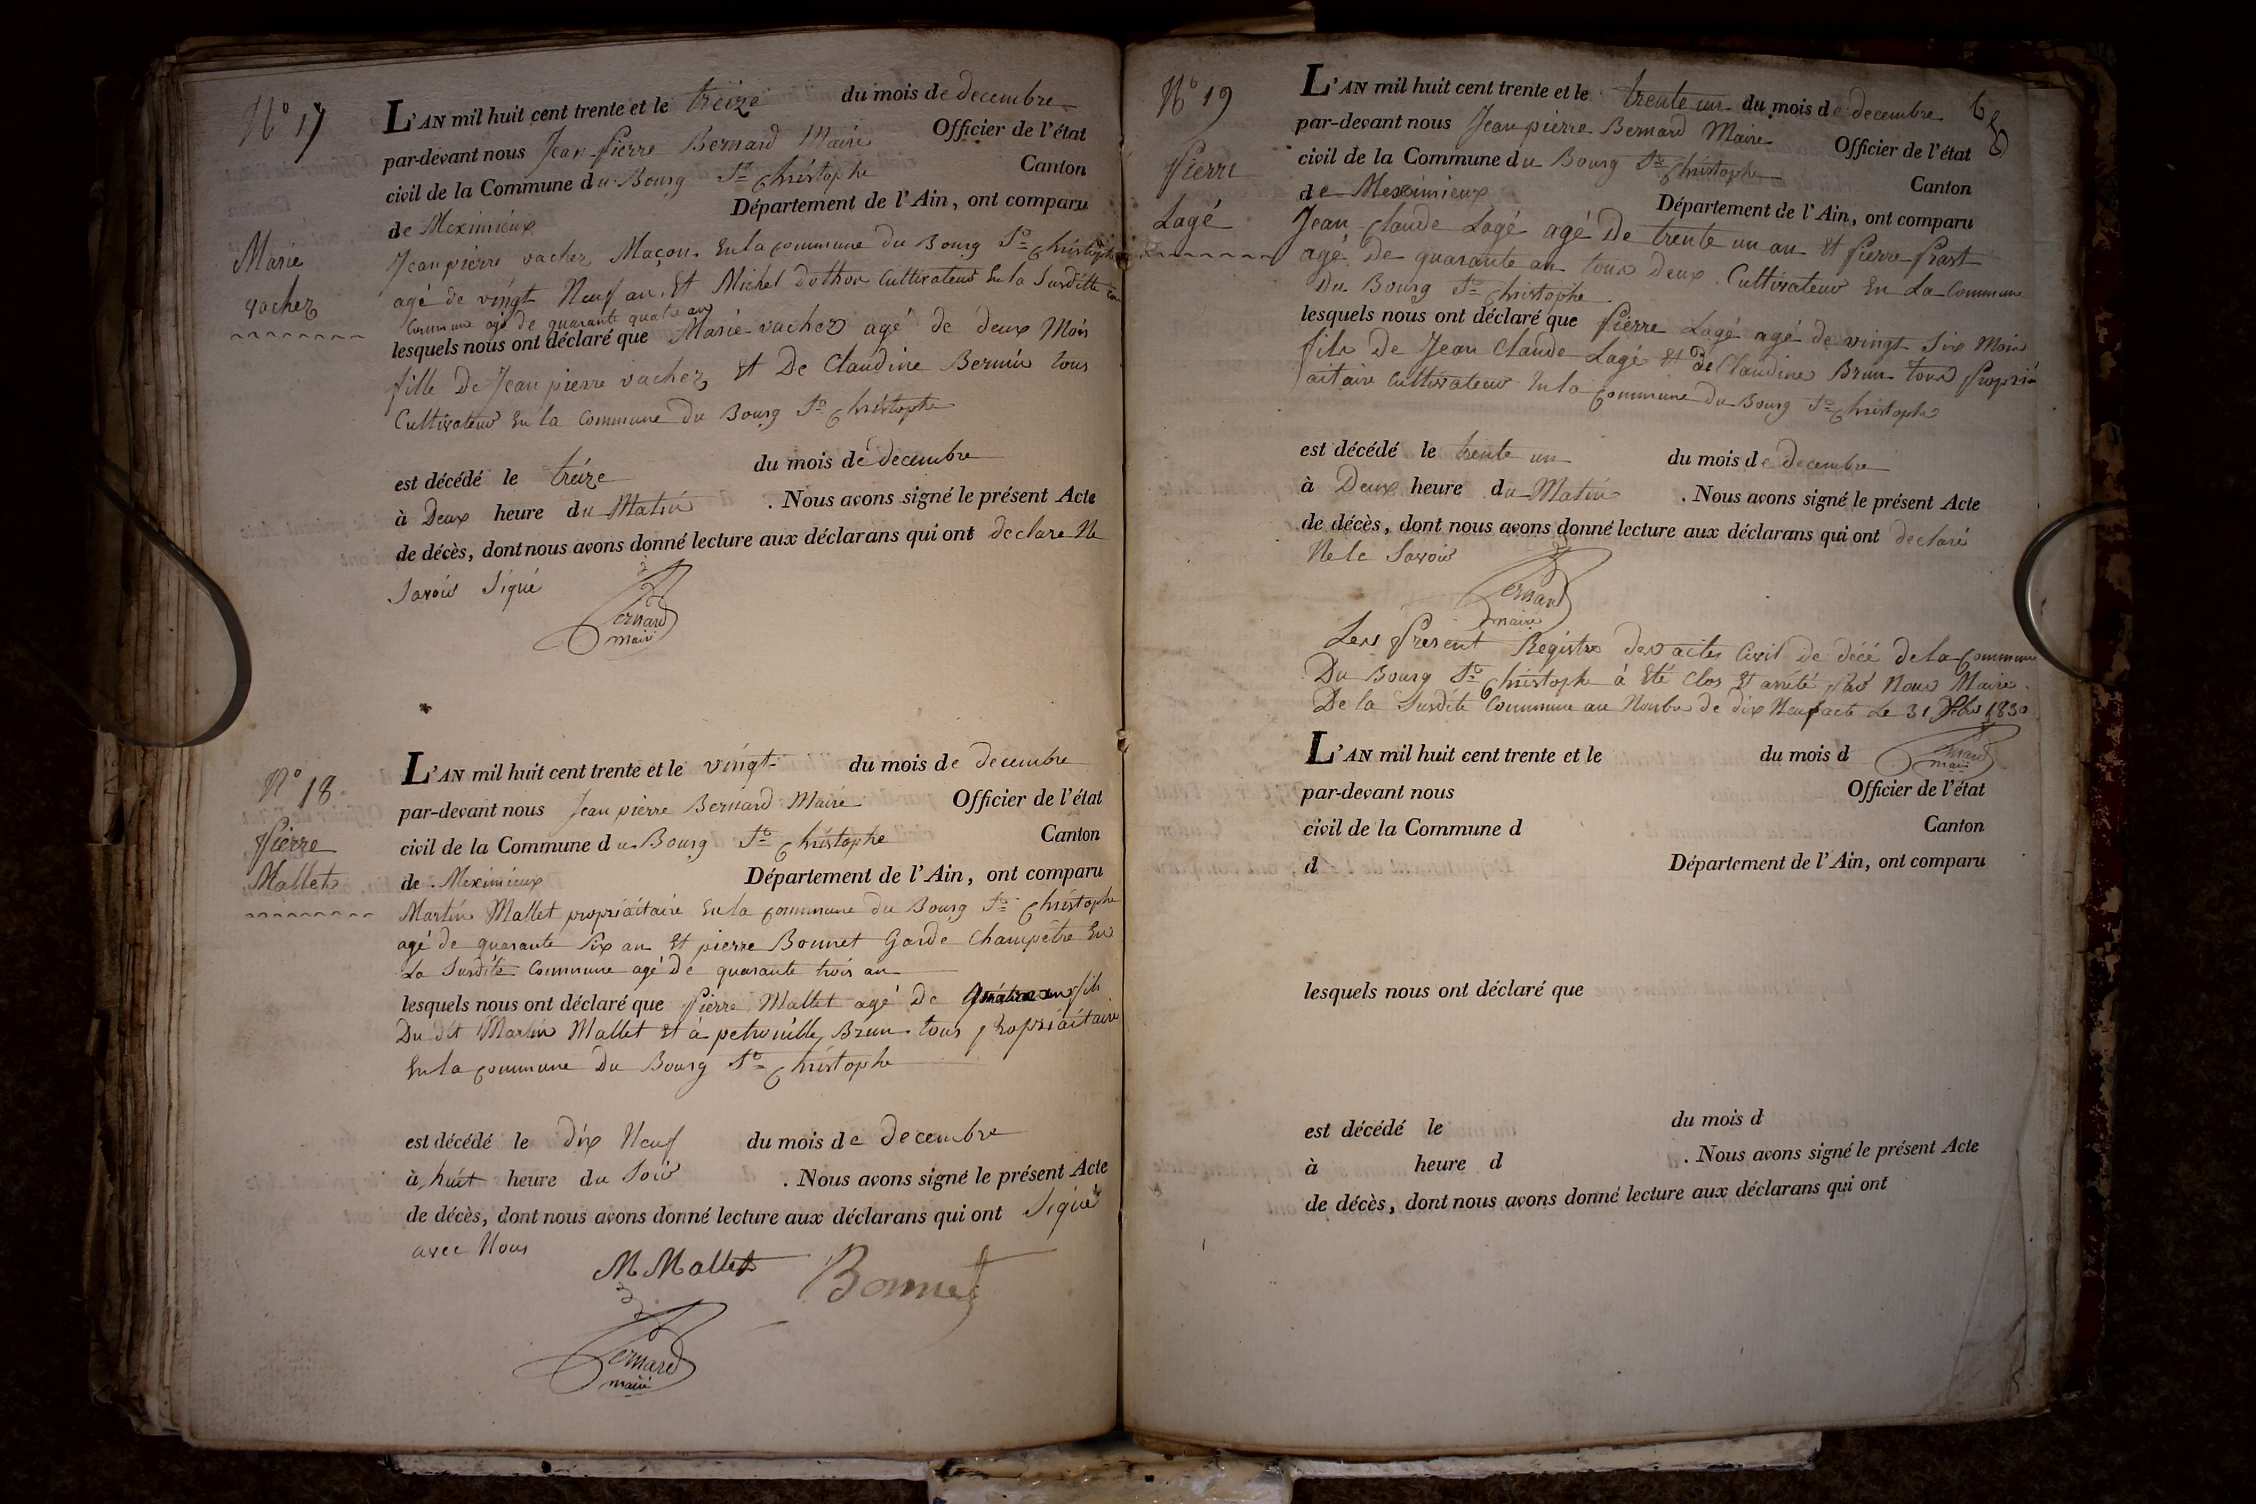 N° 17
Marie
vachez
L'AN mil huit cent trente et le treize du mois de decembre
par-devant nous Jean pierre Bernard Maire Officier de l'état
civil de la Commune du Bourg St christophe Canton
de Meximieux Département de l'Ain, ont comparu
Jean pierre vachez Maçon En la commune du Bourg St christophe
agé de vingt Neuf an Et Michel Cultivateur En la Surditte
Commune agé de quarante quatre an
lesquels nous ont déclaré que Marie vachez agé de deux Mois
fille De Jean pierre vachez Et De Claudine Bernin tous
Cultivateur En la commune du Bourg St christophe
est décédé le treize du mois de decembre
à Deux heure du Matin . Nous avons signé le présent Acte
de décès, dont nous avons donné lecture aux déclarans qui ont declare Ne
Savoir Signé
Bernard
maire
N° 18
Pierre
Mallet
L'AN mil huit cent trente et le vingt du mois de decembre
par-devant nous Jean pierre Bernard Maire Officier de l'état
civil de la Commune du Bourg St christophe Canton
de Meximieux Département de l'Ain, ont comparu
Martin Mallet propriaitaire En la commune du Bourg St christophe
agé de quarante Six an Et pierre Bonnet Garde Champêtre En
La Surdite Commune agé de quarante trois an
lesquels nous ont déclaré que Pierre Mallet agé De fils
Du dit Martin Mallet Et à petrouille Brun tous propriaitaire
En la commune Du Bourg St christophe
est décédé le dix Neuf du mois de decembre
à huit heure du Soir . Nous avons signé le présent Acte
de décès, dont nous avons donné lecture aux déclarans qui ont Signé
avec Nous
M Mallet Bonnet
Bernard
maire
N° 19
Pierre
Lagé
L'AN mil huit cent trente et le trente un du mois de decembre
par-devant nous Jean pierre Bernard Maire Officier de l'état
civil de la Commune du Bourg St christophe Canton
de Meximieux Département de l'Ain, ont comparu
Jean Claude Lagé agé De trente un an Et Pierre Prost
agé De quarante an tous Deux Cultivateur En La Commune
Du Bourg St christophe
lesquels nous ont déclaré que Pierre Lagé agé de vingt Six Mois
fils De Jean Claude Lagé Et de Claudine Brun tous Propri
aitaire Cultivateur En la commune du Bourg St christophe
est décédé le trente un du mois de decembre
à Deux heure du Matin . Nous avons signé le présent Acte
de décès, dont nous avons donné lecture aux déclarans qui ont declaré
Ne le Savoir
Bernard
maire
Les Present Registre des actes Civil de décé de la commune
Du Bourg St christophe à Eté Clos Et arrété par Nous Maire
De la Surdite Commune au Nombre de dix Neuf acte Le 31 Xbre 1830
Bernard
maire
L'AN mil huit cent trente et le du mois d
par-devant nous Officier de l'état
civil de la Commune d Canton
d Département de l'Ain, ont comparu
lesquels nous ont déclaré que
est décédé le du mois d
à heure d . Nous avons signé le présent Acte
de décès, dont nous avons donné lecture aux déclarans qui ont